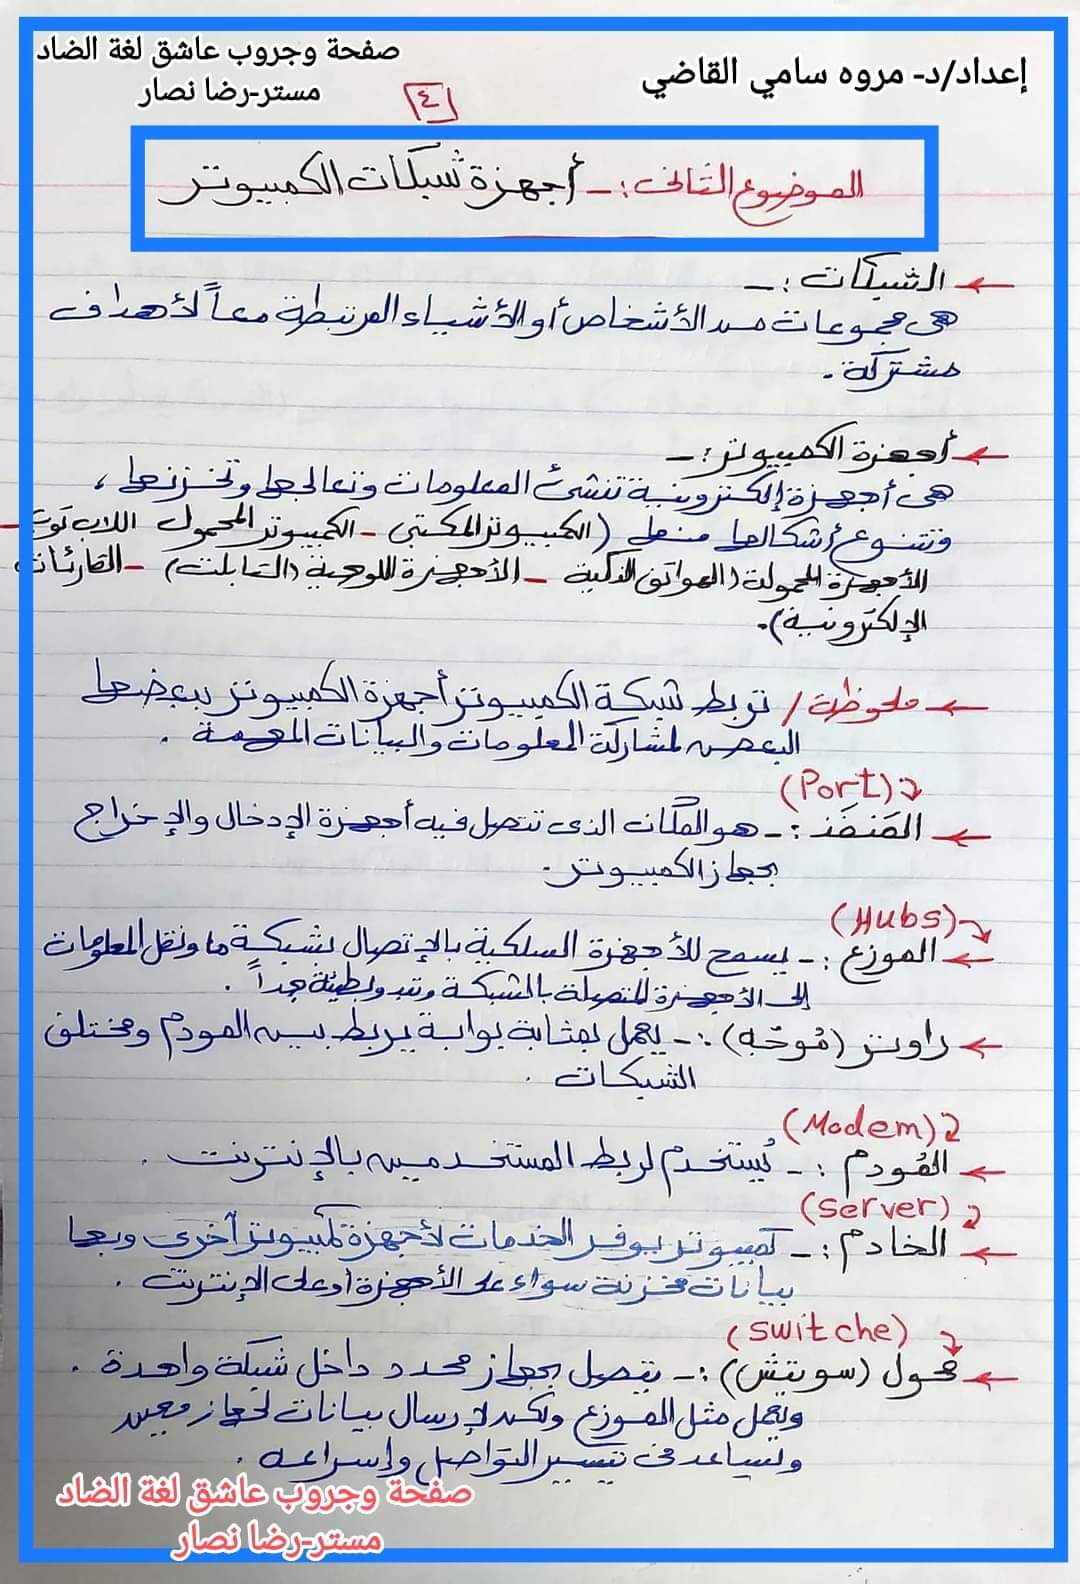 إعداد/د- مروه سامي القاضي
صفحة وجروب عاشق لغة الضاد
مستر-رضا نصار
٤
الموضوع الثانى :- أجهزة شبكات الكمبيوتر
الشبكات :-
هى مجموعات من الأشخاص أو الأشياء المرتبطة معاً لأهداف
مشتركة .
أجهزة الكمبيوتر :-
هى أجهزة إلكترونية تنشئ المعلومات وتعالجها وتخزنها ،
وتتنوع أشكالها منها (الكبيوتر المكتبى - الكمبيوتر المحمول اللاب توب -
الأجهزة المحمولة (الهواتف الذكية - الأجهزة اللوحية (التابلت) - القارئات
الإلكترونية).
ملحوظة / تربط شبكة الكمبيوتر أجهزة الكمبيوتر ببعضها
البعض لمشاركة المعلومات والبيانات المهمة .
(Port)
المَنفَذ :- هو المكان الذى تتصل فيه أجهزة الإدخال والإخراج
بجهاز الكمبيوتر .
(Hubs)
الموزع :- يسمح للأجهزة السلكية بالإتصال بشبكة ما ونقل المعلومات
إلى الأجهزة المتصلة بالشبكة وتبدو بطيئة جداً .
راوتر (مُوجّه) :- يعمل بمثابة بوابة يربط بين المودم ومختلف
الشبكات .
(Modem)
المُودم :- يُستخدم لربط المستخدمين بالإنترنت .
(Server)
الخادم :- كمبيوتر يوفر الخدمات لأجهزة كمبيوتر آخرى وبها
بيانات مخزنة سواء على الأجهزة أو على الإنترنت .
(Switche)
محول (سويتش) :- يتصل بجهاز محدد داخل شبكة واحدة .
ويعمل مثل الموزع ولكن لإرسال بيانات لجهاز معين
وتساعد فى تيسير التواصل وإسراعه .
صفحة وجروب عاشق لغة الضاد
مستر-رضا نصار